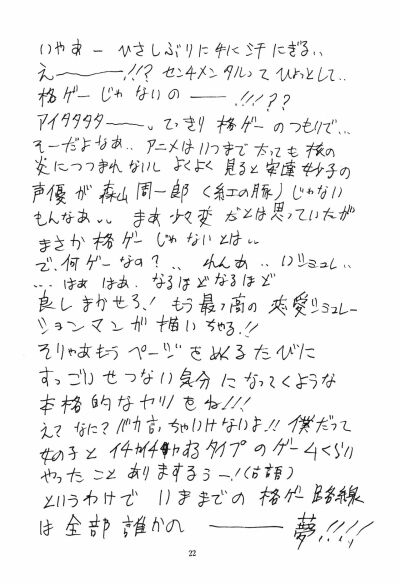 いやあー ひさしぶりに 4く 汗 にぎる、、
え――――!!? センチメンタルって ひょっとして、、
格ゲー じゃ ないの ―― !!!??
アイタタタタ――。てっきり 格ゲーのつもりで、、
そーだよなあ、、アニメはいつまでたっても 核の
炎につつまれないし よくよく 見ると 安達 妙子の
声優が 森山 周一郎 〈紅の豚〉じゃない
もんなあ、、 まあ 少々変 だとは 思っていたが
まさか 格ゲー じゃないとは、、
で、何ゲーなの?、、 れんあ、、いシミュレ、、
、、はぁ はぁ、なるほどなるほど
良し まかせろ! もう 最っ高の 恋愛シミュレー
ションマンガ 描いちゃる!!
そりゃあもう ページ をめくるたびに
すっごい せつない 気分 になってくような
本格的な ヤツ をね!!!
え? なに? バカ言っちゃいけないよ!! 僕だって
女の子と イチャイチャするタイプのゲームくらい
やったこと ありまするぅー!(古語)
というわけで いままでの 格ゲー路線
は 全部 誰かの ―――― 夢!!!!
22